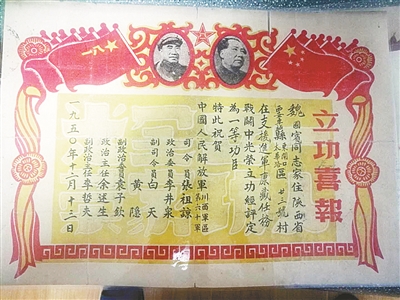 立功喜報
魏國賓同志家住陝西省
縣 區廿三號村
在支援進軍康藏任務
戰鬥中光榮立功經評定
為一等功臣
特此祝賀
中國人民解放軍川西軍區第六十軍
司令員張祖諒
政治委員李井泉
副司令員白天
黄隐
副政治委員袁子欽
政治主任余述生
副政治主任李哲夫
一九五〇年 月十三日